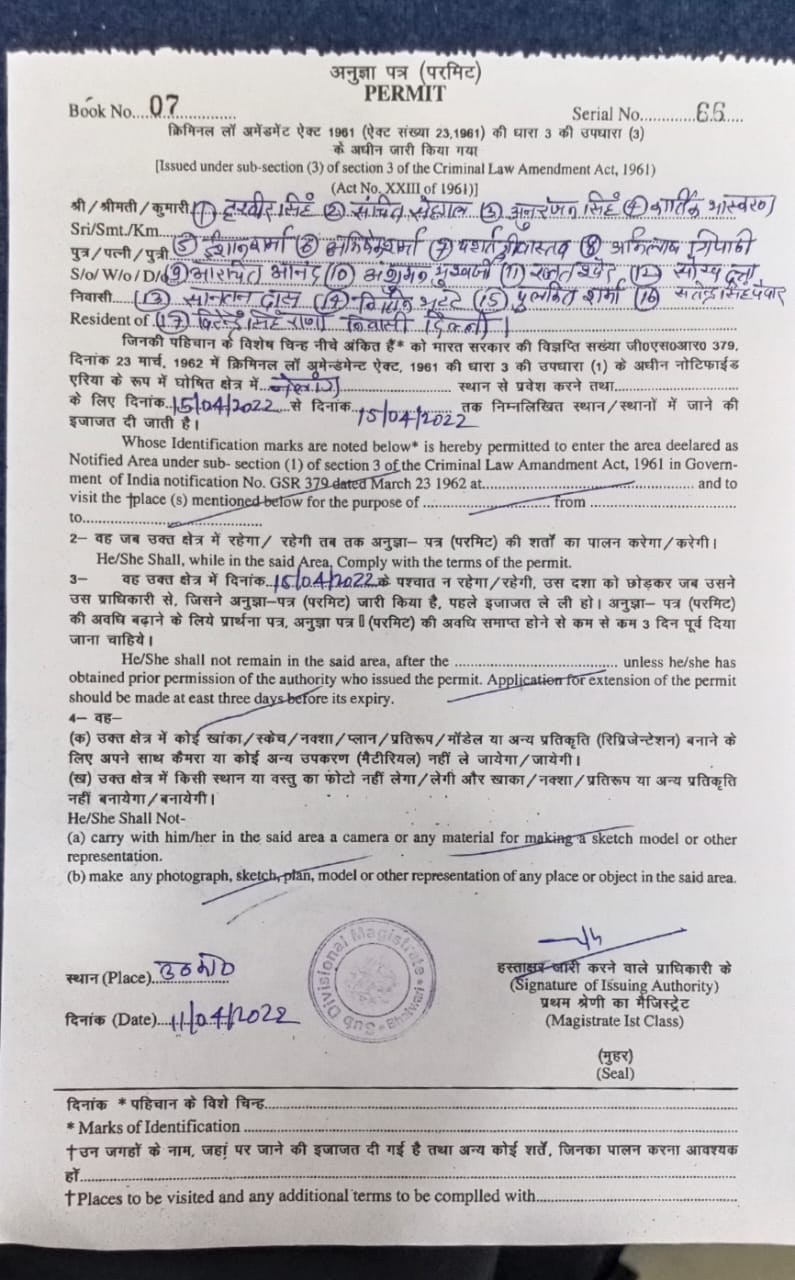 अनुज्ञा पत्र (परमिट)
PERMIT
Book No....07............
Serial No............66....
क्रिमिनल लॉ अमेंडमेंट ऐक्ट 1961 (ऐक्ट संख्या 23,1961) की धारा 3 की उपधारा (3)
के अधीन जारी किया गया
[Issued under sub-section (3) of section 3 of the Criminal Law Amendment Act, 1961)
(Act No. XXIII of 1961)]
श्री / श्रीमती / कुमारी (1) हरवीर सिंह (2) संचित सेहगल (3) अनुरंजन सिंह (4) कार्तिक
Sri/Smt./Km.
पुत्र / पत्नी / पुत्री (5) ईशान शर्मा (6) अभिषेक शर्मा (7) यशर्त श्रीवास्तव (8) त्रिपाठी
S/o/ W/o / D/o (9) आनंद (10) (11) (12)
निवासी (13) सानतन दास (14) (15) पुलकित शर्मा (16)
Resident of (17) सिंह राणा निवासी दिल्ली।
जिनकी पहिचान के विशेष चिन्ह नीचे अंकित हैं* को भारत सरकार की विज्ञप्ति सख्या जी0एस0आर0 379,
दिनांक 23 मार्च, 1962 में क्रिमिनल लॉ अुमेन्डमेन्ट ऐक्ट, 1961 की धारा 3 की उपधारा (1) के अधीन नोटिफाईड
एरिया के रूप में घोषित क्षेत्र में.. नेलांग ...................... स्थान से प्रवेश करने तथा......................
के लिए दिनांक..15/04/2022...से दिनांक..15/04/2022 तक निम्नलिखित स्थान/स्थानों में जाने की
इजाजत दी जाती है।
Whose Identification marks are noted below* is hereby permitted to enter the area deelared as
Notified Area under sub- section (1) of section 3 of the Criminal Law Amandment Act, 1961 in Govern-
ment of India notification No. GSR 379 dated March 23 1962 at...................................... and to
visit the †place (s) mentioned below for the purpose of .......................... from ..........................
to....................................
2– वह जब उक्त क्षेत्र में रहेगा/ रहेगी तब तक अनुज्ञा– पत्र (परमिट) की शर्तों का पालन करेगा/करेगी।
He/She Shall, while in the said Area, Comply with the terms of the permit.
3– वह उक्त क्षेत्र में दिनांक..15/04/2022के पश्चात न रहेगा/रहेगी, उस दशा को छोड़कर जब उसने
उस प्राधिकारी से, जिसने अनुज्ञा–पत्र (परमिट) जारी किया है, पहले इजाजत ले ली हो। अनुज्ञा– पत्र (परमिट)
की अवधि बढ़ाने के लिये प्रार्थना पत्र, अनुज्ञा पत्र (परमिट) की अवधि समाप्त होने से कम से कम 3 दिन पूर्व दिया
जाना चाहिये।
He/She shall not remain in the said area, after the ..................................... unless he/she has
obtained prior permission of the authority who issued the permit. Application for extension of the permit
should be made at east three days before its expiry.
4– वह–
(क) उक्त क्षेत्र में कोई खांका/स्केच/नक्शा/प्लान/प्रतिरूप/मॉडेल या अन्य प्रतिकृति (रिप्रिजेन्टेशन) बनाने के
लिए अपने साथ कैमरा या कोई अन्य उपकरण (मैटीरियल) नहीं ले जायेगा/जायेगी।
(ख) उक्त क्षेत्र में किसी स्थान या वस्तु का फोटो नहीं लेगा/लेगी और खाका/नक्शा/प्रतिरूप या अन्य प्रतिकृति
नहीं बनायेगा/बनायेगी।
He/She Shall Not-
(a) carry with him/her in the said area a camera or any material for making a sketch model or other
representation.
(b) make any photograph, sketch, plan, model or other representation of any place or object in the said area.
Sub Divisional Magistrate
Bhatwari
स्थान (Place)....................
दिनांक (Date)...11/04/2022
हस्ताक्षर जारी करने वाले प्राधिकारी के
(Signature of Issuing Authority)
प्रथम श्रेणी का मैजिस्ट्रेट
(Magistrate Ist Class)
(मुहर)
(Seal)
दिनांक * पहिचान के विशे चिन्ह....................................
* Marks of Identification ....................................
†उन जगहों के नाम, जहां पर जाने की इजाजत दी गई है तथा अन्य कोई शर्ते, जिनका पालन करना आवश्यक
हों....................................
†Places to be visited and any additional terms to be complled with....................................